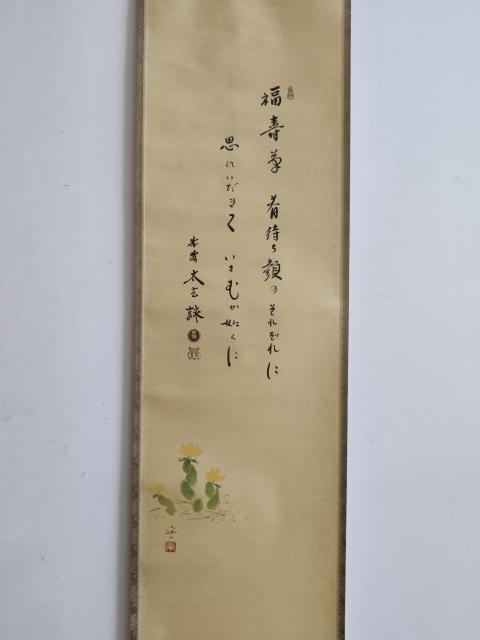 福壽草 春待ち顔のそれぞれに
思ひいだきて いきむが如くに
太玄 詠